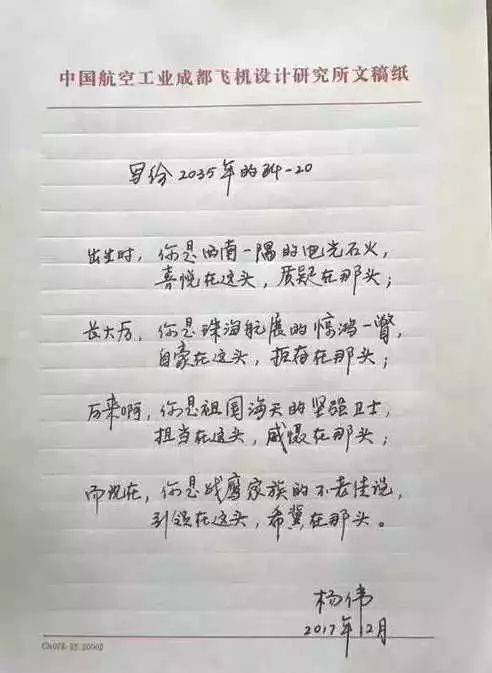 中国航空工业成都飞机设计研究所文稿纸
写给2035年的歼-20
出生时，你是西南一隅的电光石火，
喜悦在这头，质疑在那头；
长大后，你是珠海航展的惊鸿一瞥，
自豪在这头，拒存在那头；
后来啊，你是祖国海天的坚强卫士，
担当在这头，威慑在那头；
而现在，你是战鹰家族的不老传说，
引领在这头，希冀在那头。
杨伟
2017年12月